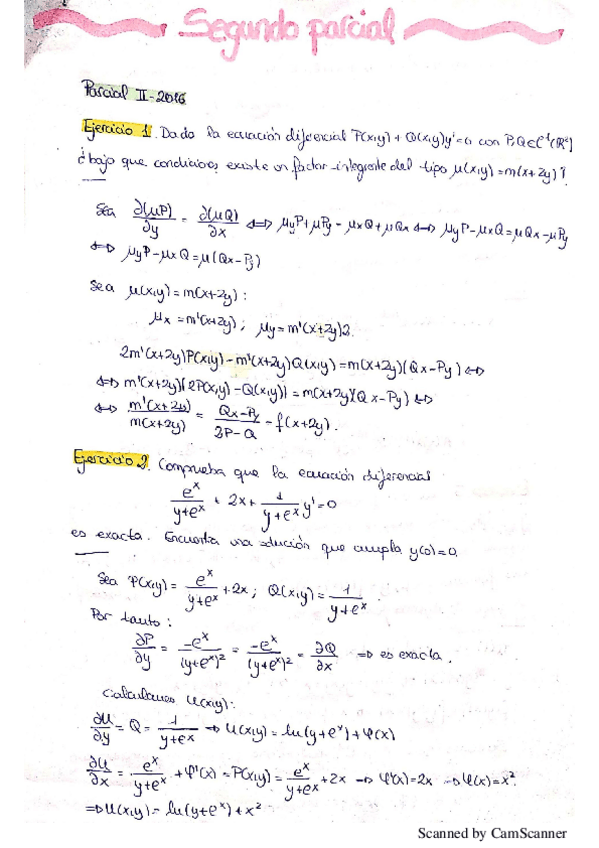 Segundo parcial
Parcial II-2016
Ejercicio 1. Dada la ecuación diferencial P(x,y) + Q(x,y)y' = 0 con P,Q∈C¹(R²)
¿bajo que condiciones existe un factor integrante del tipo μ(x,y) = m(x+2y)?
Sea ∂(μP)/∂y = ∂(μQ)/∂x ⇔ μyP + μPy = μxQ + μQx ⇔ μyP - μxQ = μQx - μPy
⇔ μyP - μxQ = μ(Qx - Py)
Sea μ(x,y) = m(x+2y):
μx = m'(x+2y); μy = m'(x+2y)2.
2m'(x+2y)P(x,y) - m'(x+2y)Q(x,y) = m(x+2y)(Qx - Py) ⇔
⇔ m'(x+2y)(2P(x,y) - Q(x,y)) = m(x+2y)(Qx - Py) ⇔
⇔ m'(x+2y)/m(x+2y) = (Qx - Py)/(2P - Q) = f(x+2y).
Ejercicio 2. Comprueba que la ecuación diferencial
e^x/(y+e^x) + 2x + 1/(y+e^x) y' = 0
es exacta. Encuentra una solución que cumpla y(0)=0.
Sea P(x,y) = e^x/(y+e^x) + 2x; Q(x,y) = 1/(y+e^x)
Por tanto:
∂P/∂y = -e^x/(y+e^x)² = -e^x/(y+e^x)² = ∂Q/∂x ⇒ es exacta.
Calculamos U(x,y):
∂U/∂y = Q = 1/(y+e^x) → U(x,y) = ln(y+e^x) + φ(x)
∂U/∂x = e^x/(y+e^x) + φ'(x) = P(x,y) = e^x/(y+e^x) + 2x → φ'(x) = 2x → φ(x) = x²
⇒ U(x,y) = ln(y+e^x) + x²
Scanned by CamScanner